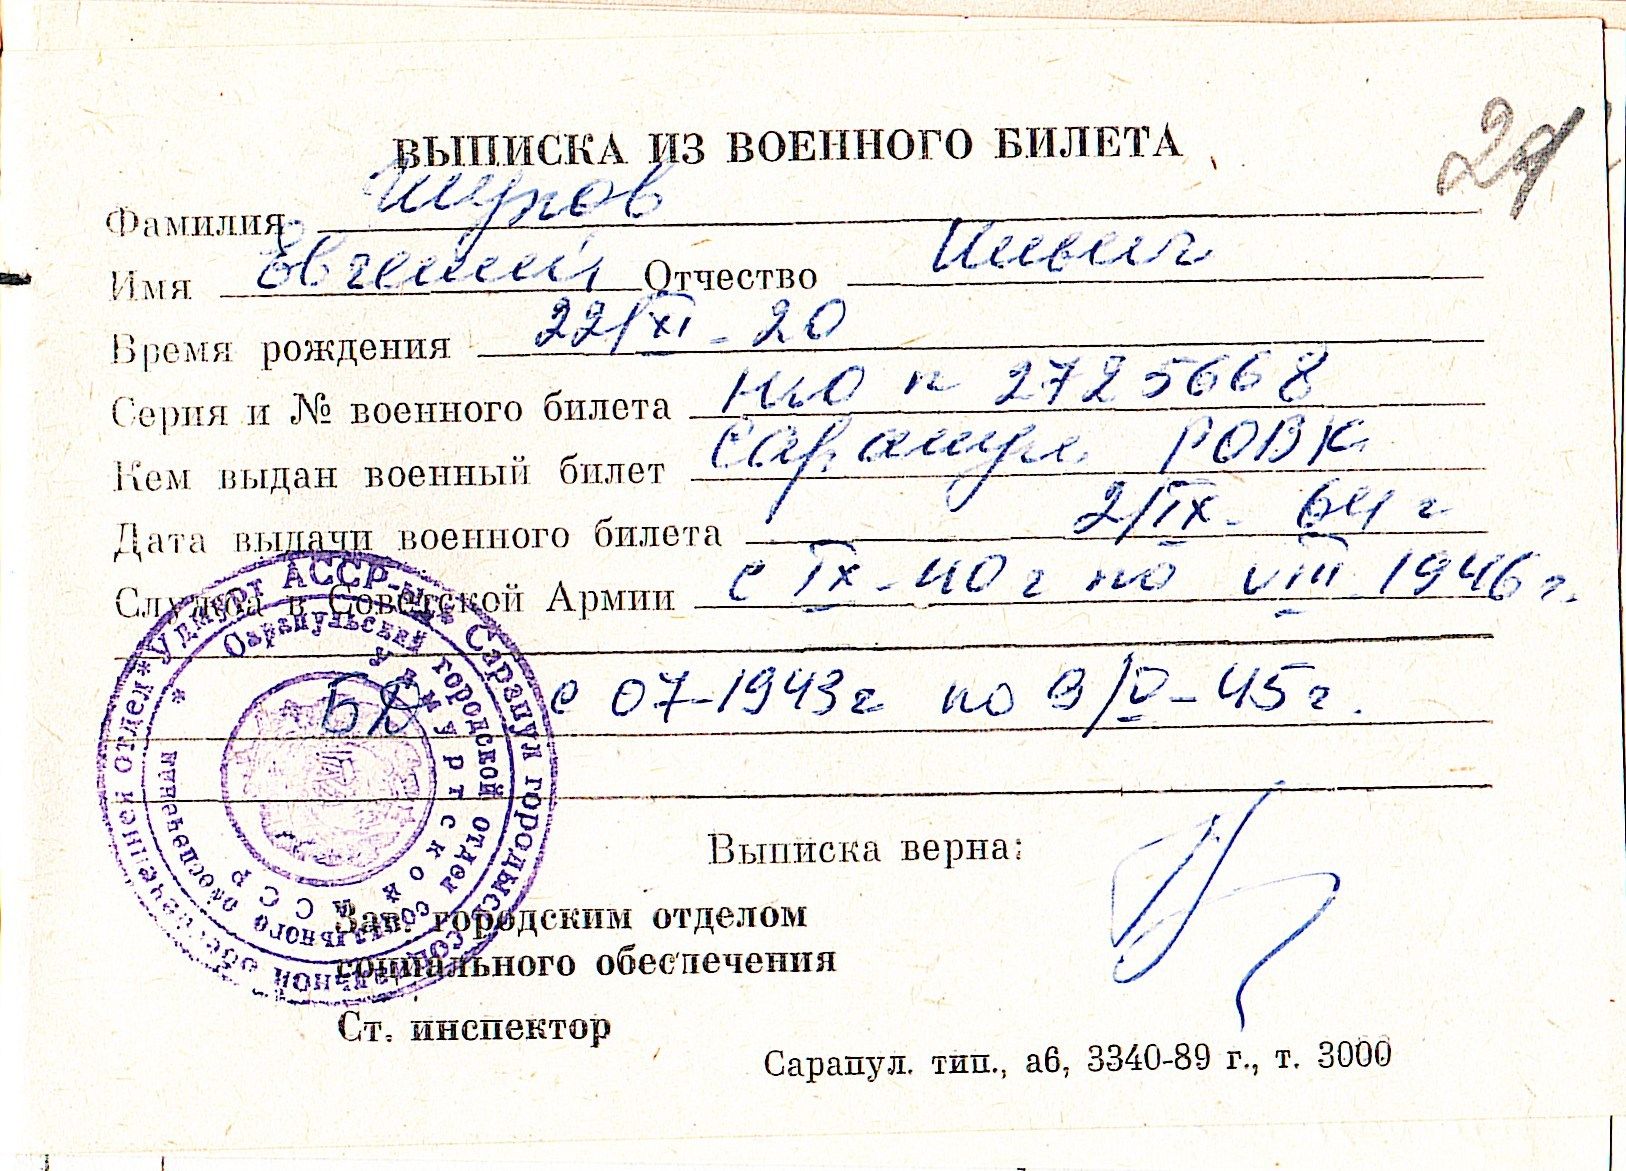 ВЫПИСКА ИЗ ВОЕННОГО БИЛЕТА
Фамилия Шуров
Имя Евгений Отчество Ильич
Время рождения 22/XI - 20
Серия и № военного билета НО № 2725668
Кем выдан военный билет Сарапул РОВК
Дата выдачи военного билета 2/IX - 64 г
Служба в Советской Армии с IX - 40 г по VIII 1946 г.
БД с 07-1943 г по 9/V - 45 г.
Выписка верна:
Зав. городским отделом
социального обеспечения
Ст. инспектор
Сарапул. тип., а6, 3340-89 г., т. 3000
Удмурт АССР
Сарапульский городской отдел социального обеспечения
Удмуртской АССР